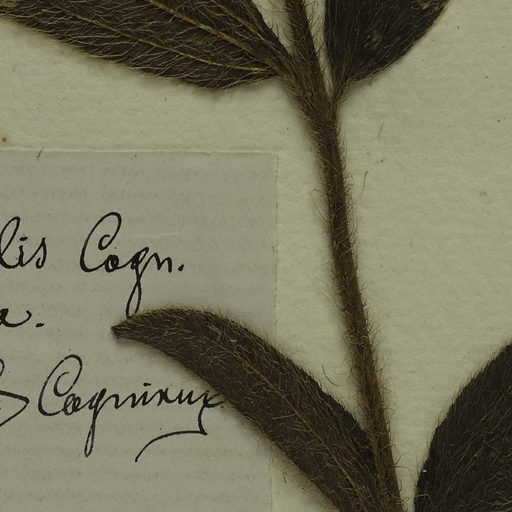 lis Cogn.
a.
Cogniaux